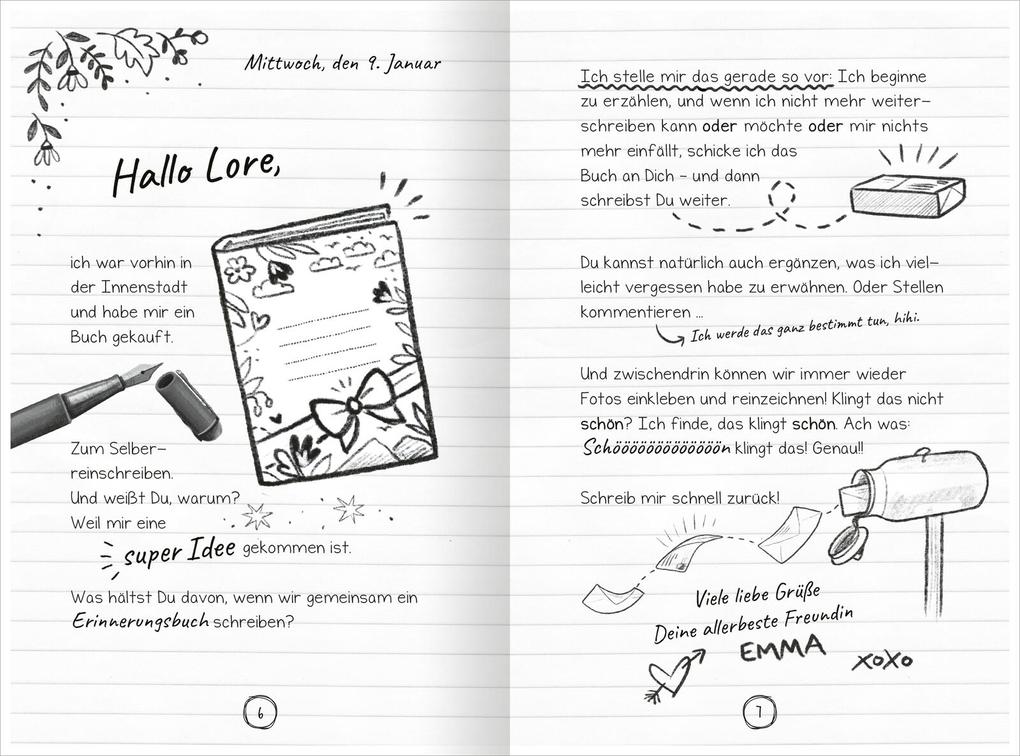 Mittwoch, den 9. Januar
Hallo Lore,
ich war vorhin in
der Innenstadt
und habe mir ein
Buch gekauft.
Zum Selber–
reinschreiben.
Und weißt Du, warum?
Weil mir eine
super Idee gekommen ist.
Was hältst Du davon, wenn wir gemeinsam ein
Erinnerungsbuch schreiben?
6
Ich stelle mir das gerade so vor: Ich beginne
zu erzählen, und wenn ich nicht mehr weiter–
schreiben kann oder möchte oder mir nichts
mehr einfällt, schicke ich das
Buch an Dich – und dann
schreibst Du weiter.
Du kannst natürlich auch ergänzen, was ich viel–
leicht vergessen habe zu erwähnen. Oder Stellen
kommentieren ...
Ich werde das ganz bestimmt tun, hihi.
Und zwischendrin können wir immer wieder
Fotos einkleben und reinzeichnen! Klingt das nicht
schön? Ich finde, das klingt schön. Ach was:
Schöööööööööööööön klingt das! Genau!!
Schreib mir schnell zurück!
Viele liebe Grüße
Deine allerbeste Freundin
EMMA
xoxo
7